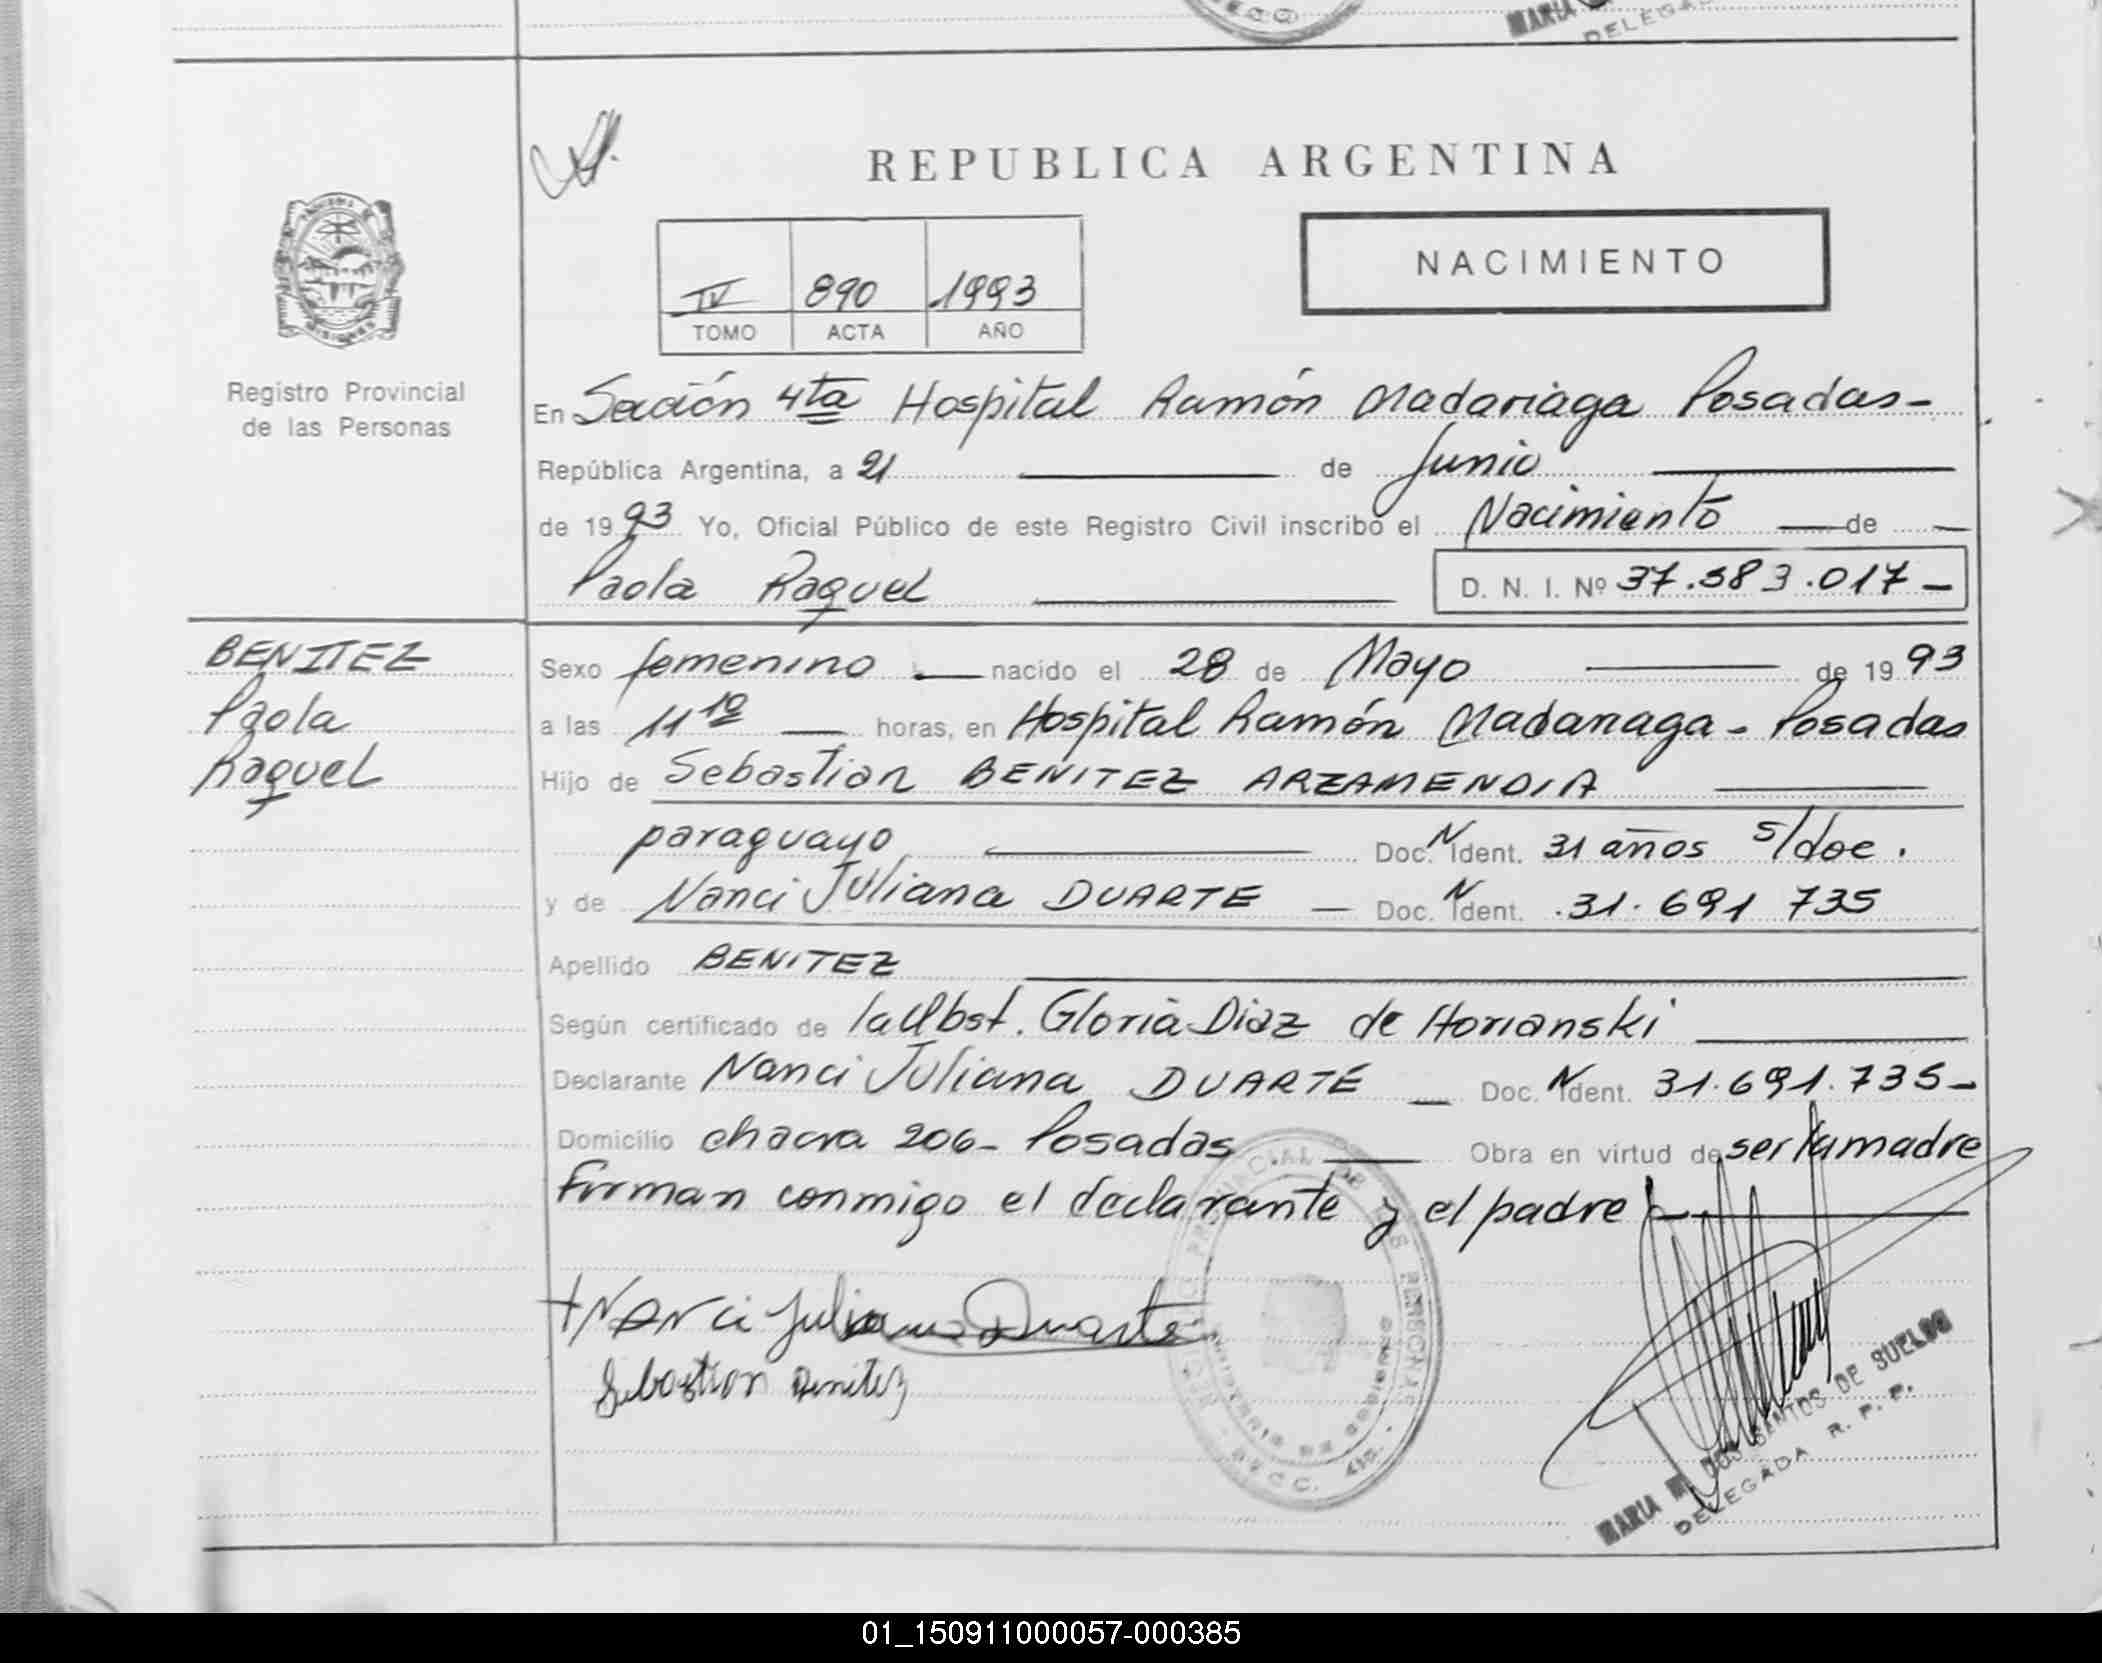 SECO
MARIA
DELEGADA
REPUBLICA ARGENTINA
NACIMIENTO
IV 890 1993
TOMO ACTA AÑO
MISIONES
Registro Provincial
de las Personas
En Sección 4ta Hospital Ramón Madariaga Posadas-
República Argentina, a 21 de Junio
de 1993 Yo, Oficial Público de este Registro Civil inscribo el Nacimiento de
Paola Raquel D. N. I. Nº 37.583.017-
BENITEZ
Paola
Raquel
Sexo femenino nacido el 28 de Mayo de 1993
a las 11 10 horas, en Hospital Ramón Madariaga - Posadas
Hijo de Sebastian BENITEZ ARZAMENDIA
paraguayo Doc. N Ident. 31 años s/doc.
y de Nanci Juliana DUARTE - Doc. N Ident. 31.691 735
Apellido BENITEZ
Según certificado de la Obst. Gloria Diaz de Horianski
Declarante Nanci Juliana DUARTE Doc. N Ident. 31.691.735-
Domicilio chacra 206- Posadas Obra en virtud de ser la madre
Firman conmigo el declarante y el padre
Nanci Juliana Duarte
Sebastian Benitez
REGISTRO PROVINCIAL DE LAS PERSONAS
MINISTERIO DE GOBIERNO
SECC. 4ta.
MARIA M. DOS SANTOS DE SUELDO
DELEGADA R. P. P.
01_150911000057-000385